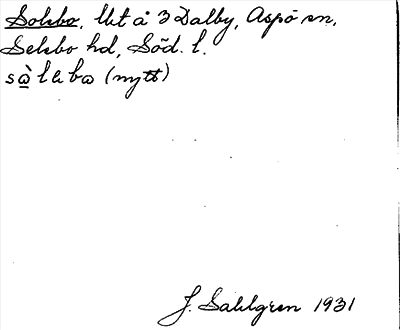 Solsbo, lht å 3 Dalby, Aspö sn,
Selebo hd, Söd. l.
sὼlsbω (nytt)
J. Sahlgren 1931